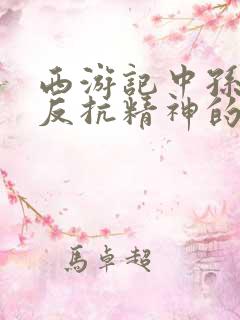 西游記中孫
反抗精神的
馬卓超